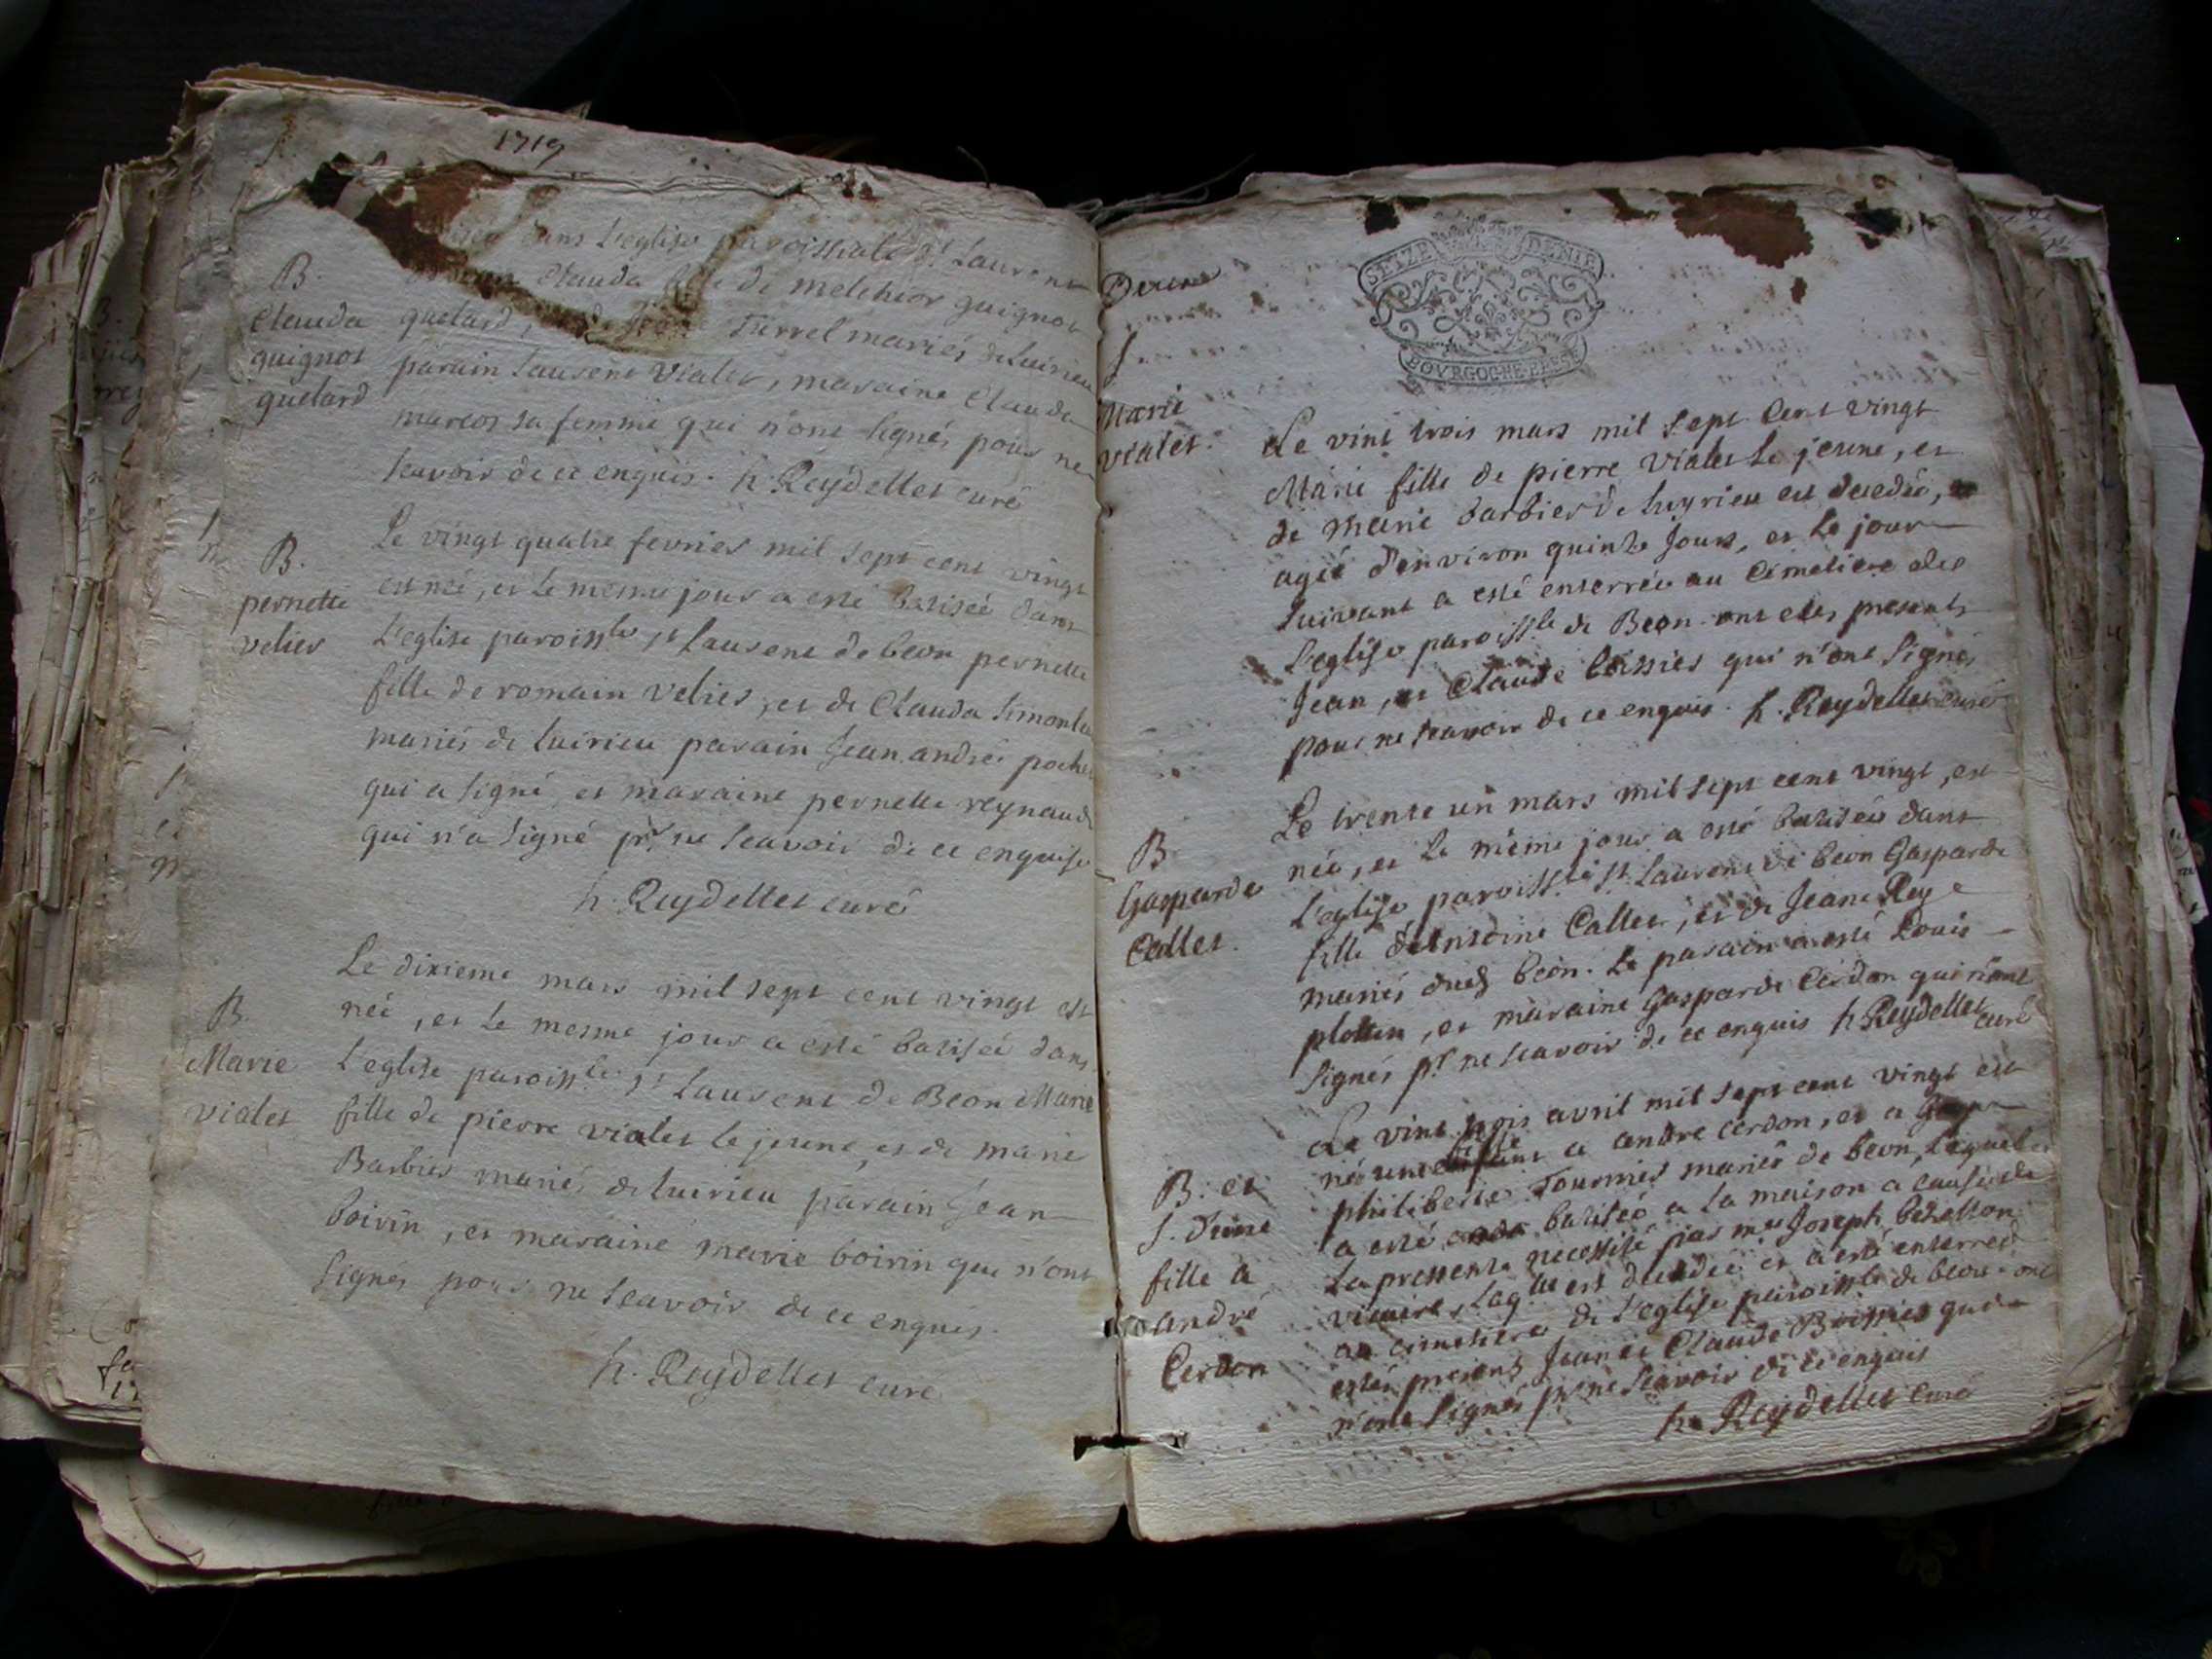 1719
dans L'eglise paroissiale St Laurent
B.
Claude
guignot
guetard
Clauda fille de melchior guignot
guetard, Turrel mariés de Luirieu
parain Laurent Vialet, maraine Clauda
marcos sa femme qui n'ont signés pour ne
scavoir de ce enquis. h. Reydellet curé
B.
pernette
velier
Le vingt quatre fevrier mil sept cent vingt
est née, et le mesme jour a esté batisée dans
L'eglise paroissle St Laurent de beon pernette
fille de romain velier, et de Clauda
mariés de Luirieu parain Jean andré
qui a signé, et maraine pernette reynaud
qui n'a signé pr ne scavoir de ce enquise
h. Reydellet curé
B.
Marie
vialet
Le dixieme mars mil sept cent vingt est
née, et le mesme jour a esté batisée dans
L'eglise paroissle St Laurent de Beon Marie
fille de pierre vialet le jeune, et de marie
Barbier mariés de Luirieu parain Jean
boivin, et maraine marie boivin qui n'ont
signés pour ne scavoir de ce enquis.
h. Reydellet curé
SEIZE DENIE
BOVRGOGNE BRESSE
Marie
vialet.
Le vint trois mars mil sept Cent vingt
Marie fille de pierre Vialet Le jeune, et
de Marie barbier de luyrieu est decedée,
agée d'environ quinze Jours, et Le jour
suivant a esté enterrée au Cimetiere de
L'eglise paroissle de Beon ont etes presents
Jean, et Claude qui n'ont signés
pour ne scavoir de ce enquis. h. Reydellet curé
B
Gasparde
Callet.
Le trente un mars mil sept cent vingt, est
née, et Le même jour a esté batisée dans
L'eglise paroissle St Laurent de beon Gasparde
fille Callet, et de Jeane Rey
mariés dud beon. Le parain a esté Louis
, et maraine Gasparde Cerdon qui n'ont
signés pr ne scavoir de ce enquis h Reydellet curé
B. et
S. d'une
fille a
andré
Cerdon
Le vint trois avril mil sept cent vingt est
né une fille a andre cerdon, et a
philiberte Tournier mariés de beon, laquelle
a esté batisée a La maison a cause de
La pressente necessité par mre Joseph
vicaire, Laqlle est decedée et a esté enterrée
au cimetiere de L'eglise paroissle de beon ont
estés presents Jean et Claude qui
n'ont signés pr ne scavoir de ce enquis
h. Reydellet Curé